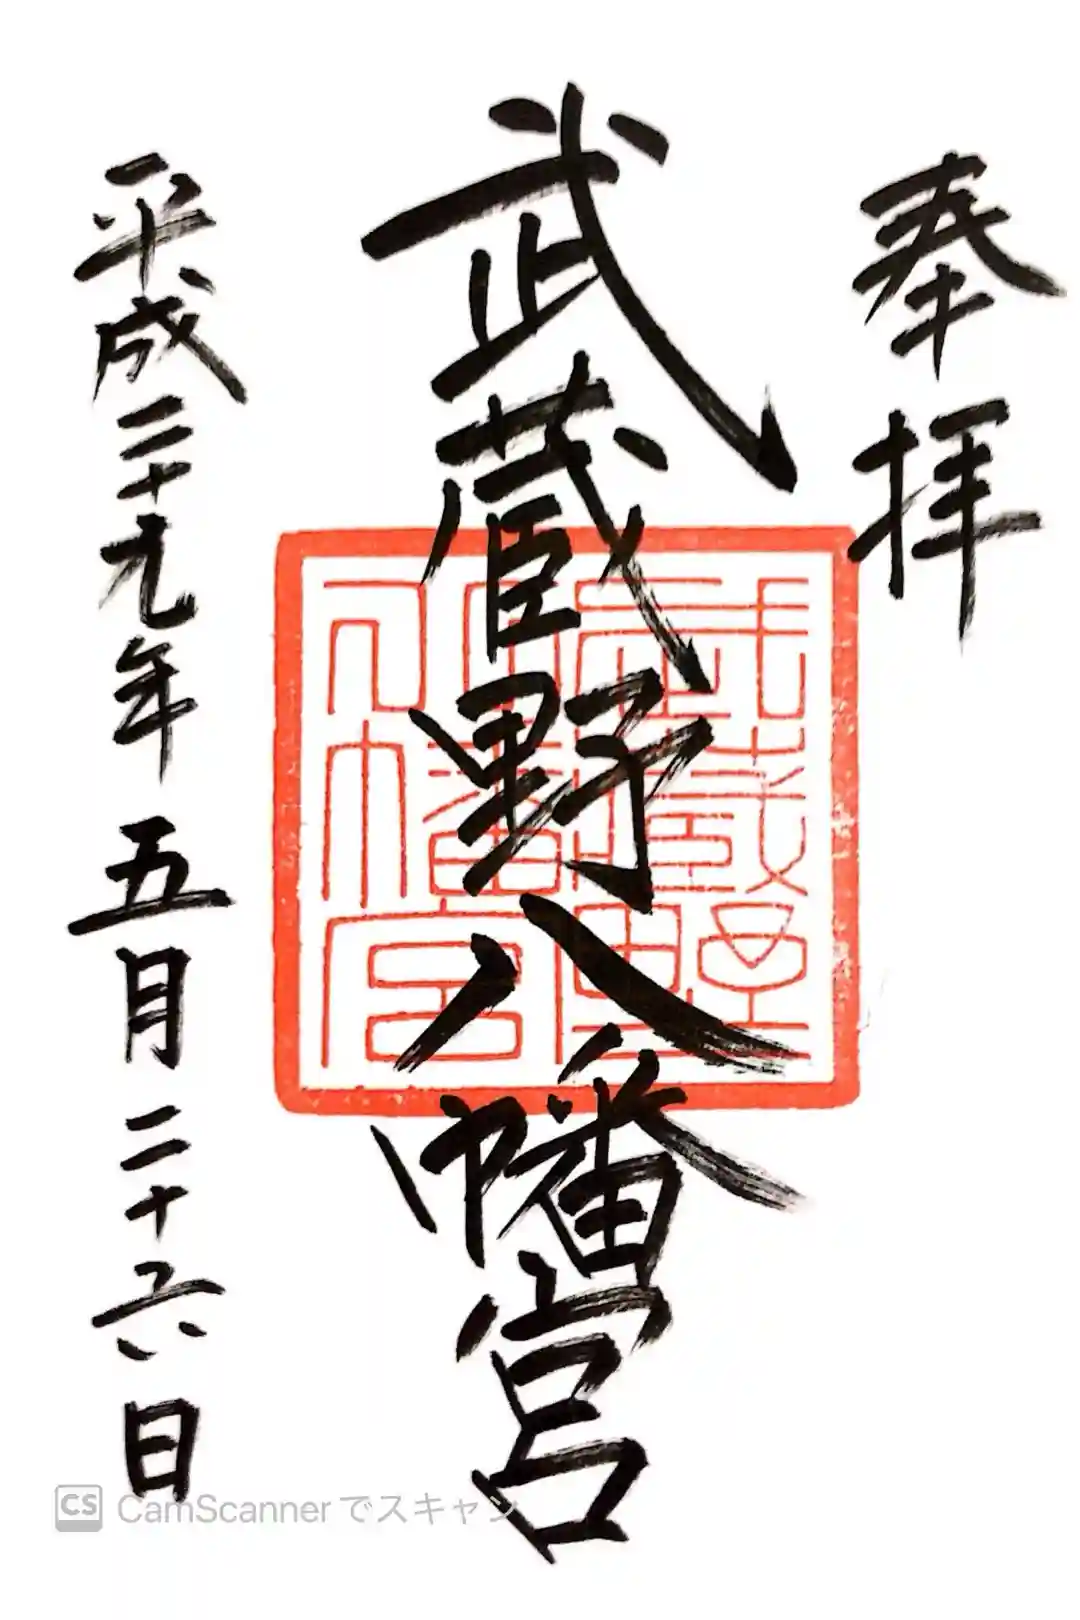 奉拝
武蔵野八幡宮
武蔵野
八幡宮
平成二十九年五月二十六日
CS CamScannerでスキャン